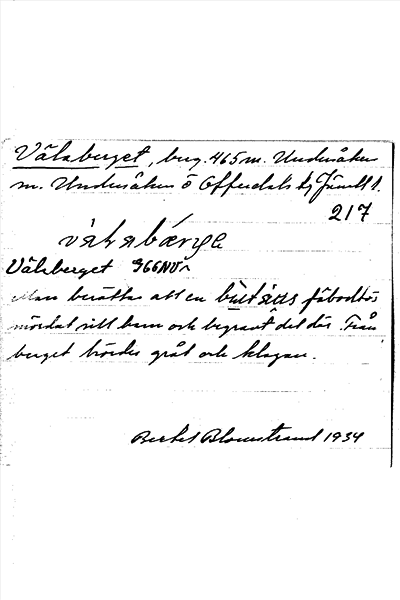 Välaberget, berg. 465 m. Undersåkers
m. Undersåkers ö Offerdals tg Jämtl l.
217
Välaberget
Man berättar att en fäbodtös
mördat sitt barn och begravt det där. Från
berget hördes gråt och klagan.
Bertel Blomstrand 1934